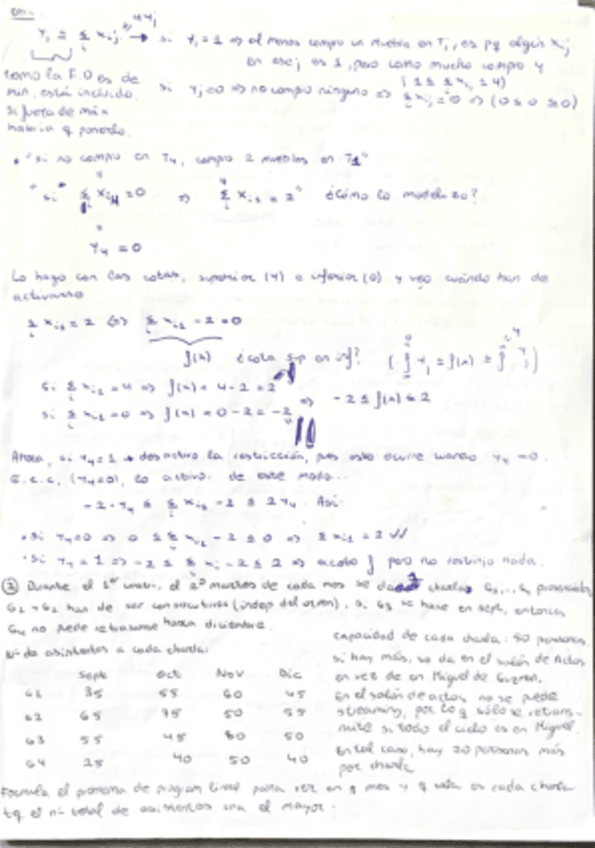 Y_j ≤ Σ_i X_ij ≤ 4Y_j → si Y_j = 1 ⇒ al menos compro un mueble en T_j, es pq algún X_ij
en ese j es 1, pero como mucho compro 4
(1 ≤ Σ X_ij ≤ 4)
como la F.O es de
min, está incluido.
si fuera de máx
habría q ponerlo.
si Y_j = 0 ⇒ no compro ninguno ⇒ Σ X_ij = 0 ⇒ (0 ≤ 0 ≤ 0)
• "si no compro en T4, compro 2 muebles en T1"
"si" Σ X_i4 = 0 ⇒ Σ X_i1 = 2" ¿Cómo lo modelizo?
Y4 = 0
Lo hago con las cotas, superior (4) e inferior (0) y veo cuándo han de
activarse
Σ X_i1 = 2 ⇔ Σ X_i1 - 2 = 0
f(x) ¿cota sup en inf?
si Σ X_i1 = 4 ⇒ f(x) = 4 - 2 = 2
⇒ -2 ≤ f(x) ≤ 2
si Σ X_i1 = 0 ⇒ f(x) = 0 - 2 = -2
Ahora, si Y4 = 1 → desactivo la restricción, pues esto ocurre cuando Y4 = 0.
E.c.c, (Y4 = 0), lo activo. de este modo..
-2·Y4 ≤ Σ X_i1 - 2 ≤ 2Y4. Así:
• si Y4 = 0 ⇒ 0 ≤ Σ X_i1 - 2 ≤ 0 ⇒ Σ X_i1 = 2 ✓✓
• si Y4 = 1 ⇒ -2 ≤ Σ X_i - 2 ≤ 2 ⇒ acoto f pero no restrinjo nada.
② Durante el 1er cuatri, el 2º martes de cada mes se da 1 charla G1,..,4
G1 y G2 han de ser consecutivas (indep del orden). si G3 se hace en sept, entonces
G4 no puede retrasarse hasta diciembre.
Nº de asistentes a cada charla:
Sept Oct Nov Dic
G1 35 55 60 45
G2 65 75 50 55
G3 55 45 80 50
G4 25 40 50 40
capacidad de cada charla: 50 personas.
si hay más, se da en el salón de Actos
en vez de en Miguel de Guzmán.
En el salón de actos no se puede
streaming, por lo q sólo se retrans-
mite si todo el ciclo es en Miguel.
En tal caso, hay 20 personas más
por charla
Formula el problema de program lineal para ver en q mes y q sala es cada charla
tq el nº total de asistentes sea el mayor.